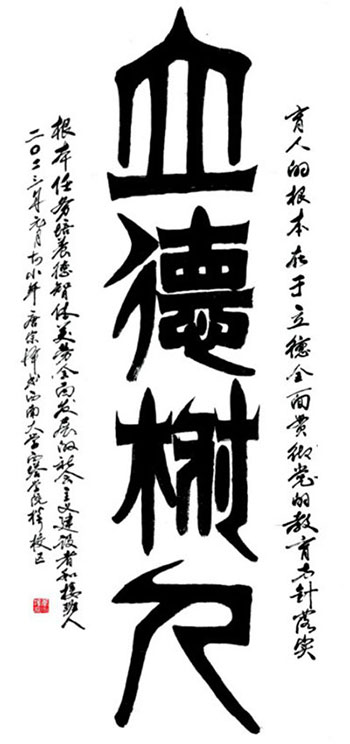 育人的根本在于立德全面贯彻党的教育方针落实
立德樹人
根本任务培养德智体美劳全面发展的社会主义建设者和接班人
二〇二三年元月于小年唐宗 西南大学 学院 校区